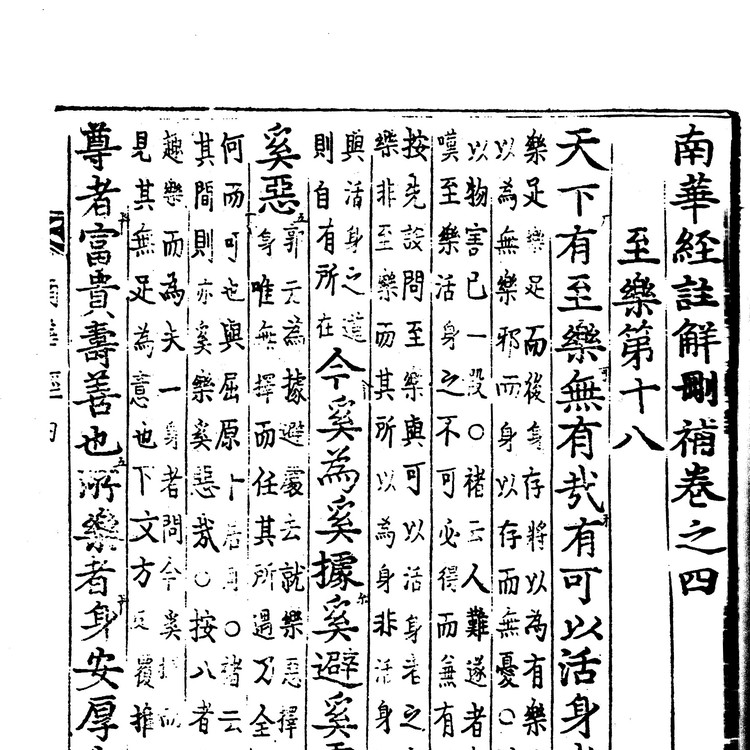 南華經註解刪補卷之四
至樂第十八
天下有至樂無有哉有可以活身
樂足樂足而後身存將以為有樂
以為無樂邪而身以存而無憂○
以物害已一段○褚云人難遂者
嘆至樂活身之不可必得而無有
按先設問至樂與可以活身者之
樂非至樂而其所以為身非活身
與活身之道
則自有所在
今奚為奚據奚避奚
奚惡
郭云為據避處去就樂惡擇
身唯無擇而任其所遇乃全
何而可也與屈原卜居同○褚云
其間則亦奚樂奚惡哉○按八者
趣樂而為夫一身者問今奚
見其無足為意也下文方反覆推
尊者富貴壽善也所樂者身安厚